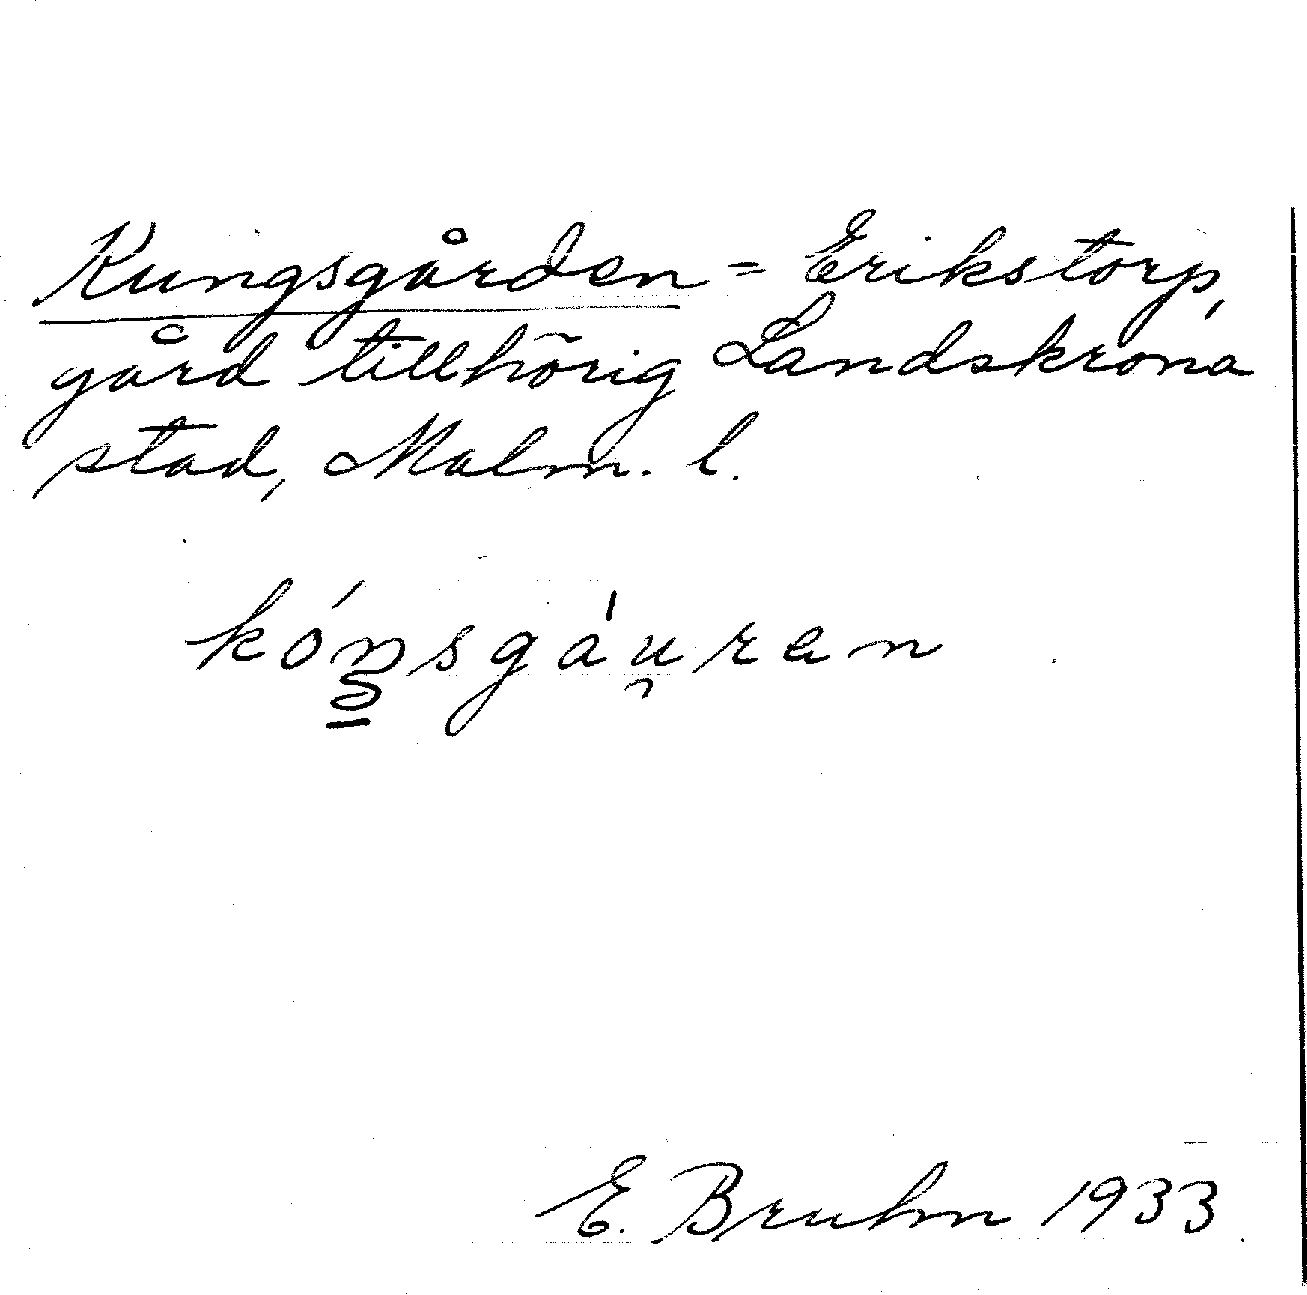 Kungsgården = Erikstorp,
gård tillhörig Landskrona
stad, Malm. l.
kóŋsgáu̯ran
E. Bruhn 1933.